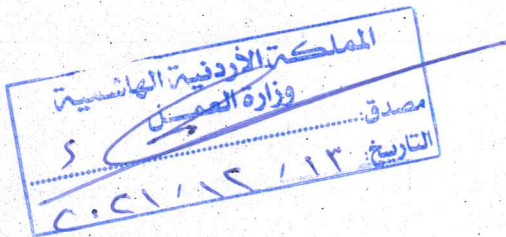 المملكة الأردنية الهاشمية
وزارة العمل
مصدق:
التاريخ: ١٣ / ١٢ / ٢٠٢١